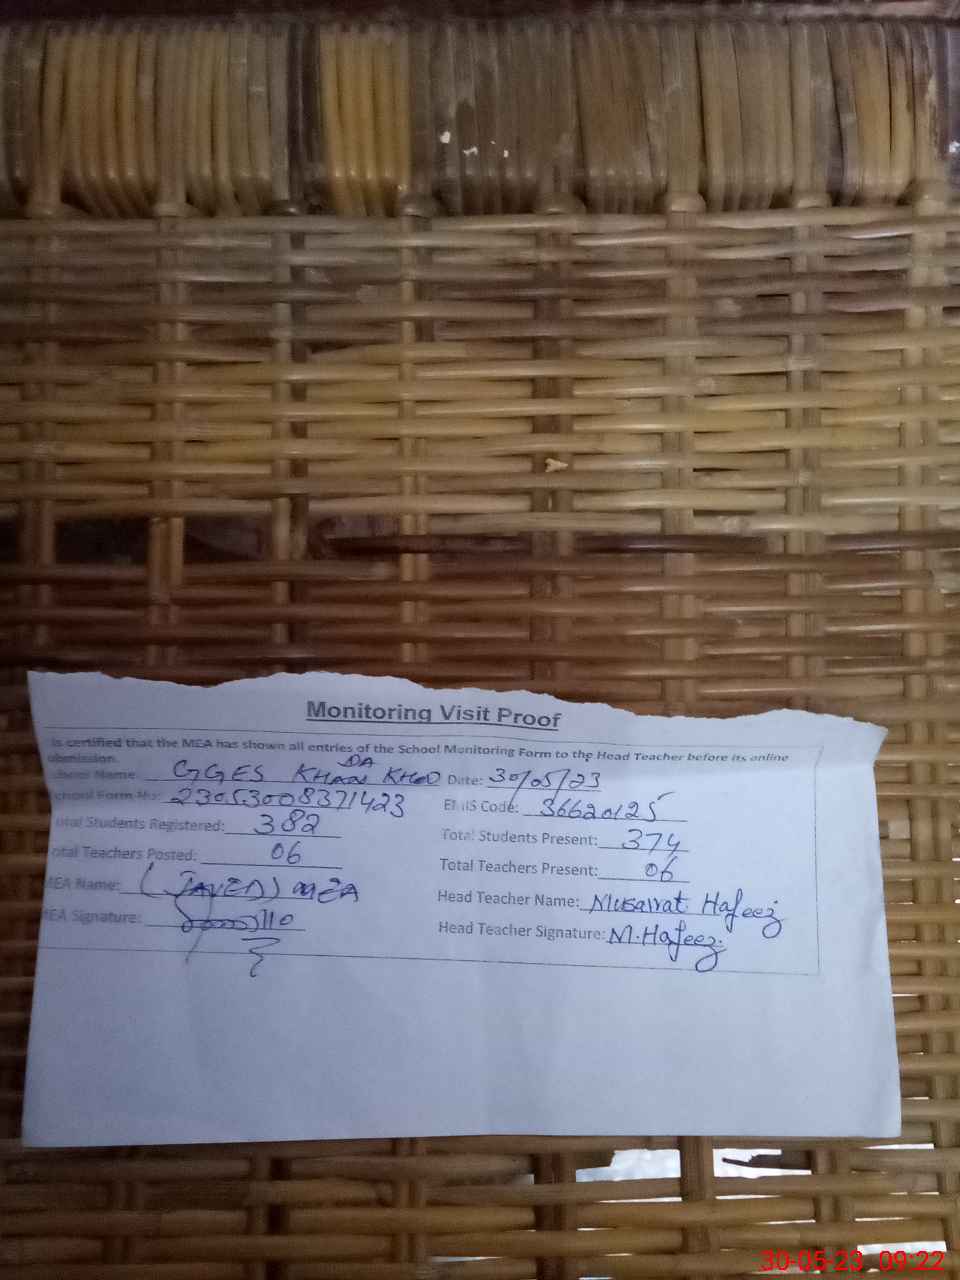 Monitoring Visit Proof
is certified that the MEA has shown all entries of the School Monitoring Form to the Head Teacher before its online
ubmission.
Name: GGES KHUDA Date: 30/05/23
chool Form No: 23053008371423 EMIS Code: 36620125
otal Students Registered: 382 Total Students Present: 374
otal Teachers Posted: 06 Total Teachers Present: 06
MEA Name: (JAVED) MEA Head Teacher Name: Musarrat Hafeez
MEA Signature: Head Teacher Signature: M.Hafeez
30-05-23 09:22